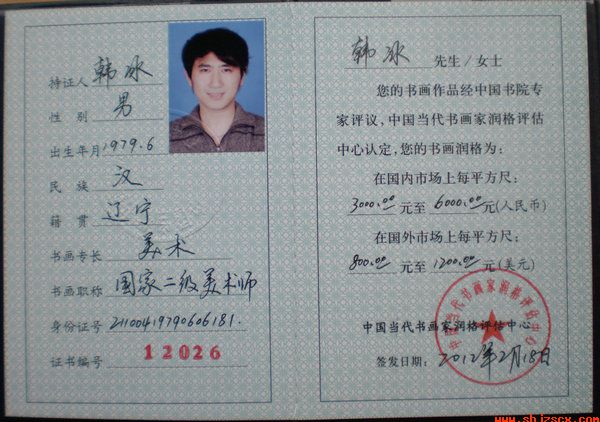 持证人 韩冰
性 别 男
出生年月 1979.6
民 族 汉
籍 贯 辽宁
书画专长 美术
书画职称 国家二级美术师
身份证号 21100419790606181.
证书编号 12026
韩冰 先生/女士
您的书画作品经中国书院专
家评议，中国当代书画家润格评估
中心认定，您的书画润格为：
在国内市场上每平方尺：
3000.00 元至 6000.00 元(人民币)
在国外市场上每平方尺：
800.00 元至 1200.00 元(美元)
中国当代书画家润格评估中心
中国当代书画家润格评估中心
签发日期： 2012年2月18日
www.shizscx.com